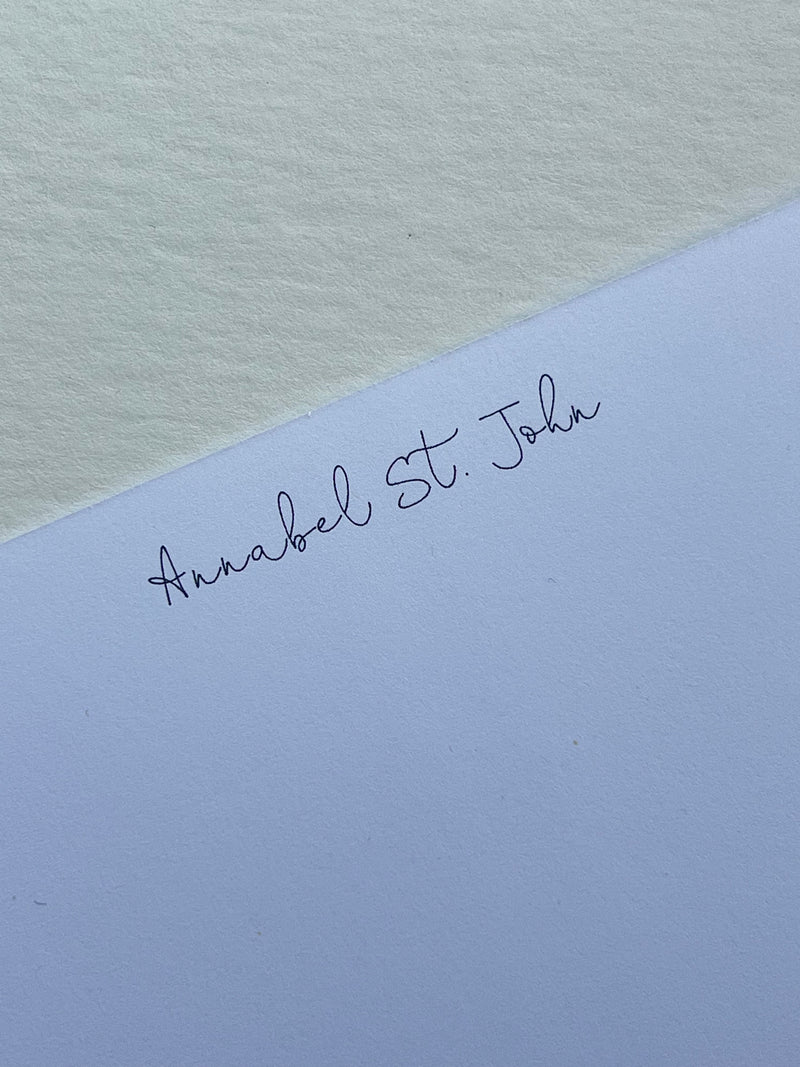 Annabel St. John